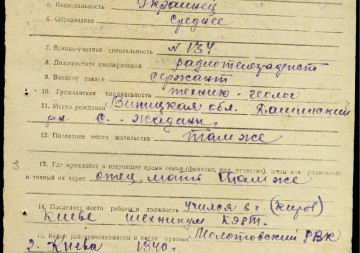 5. Национальность Украинец
6. Образование среднее
7. Военно-учетная специальность №134
8. Должностная квалификация радиотелеграфист
9. Военное звание сержант
10. Гражданская специальность техник-геолог
11. Место рождения Виницкая обл. Дашивский
р-н с. Жадани
12. Последнее место жительства там же
3
13. Где проживает в настоящее время семья (фамилия, имя, отчество) жены или родителей
и точный их адрес отец, мать там же
14. Последнее место работы и должность учился в г. (Киров)
Киеве техникум
15. Каким райвоенкоматом и когда призван Молотовский РВК
г. Киева 1940г.